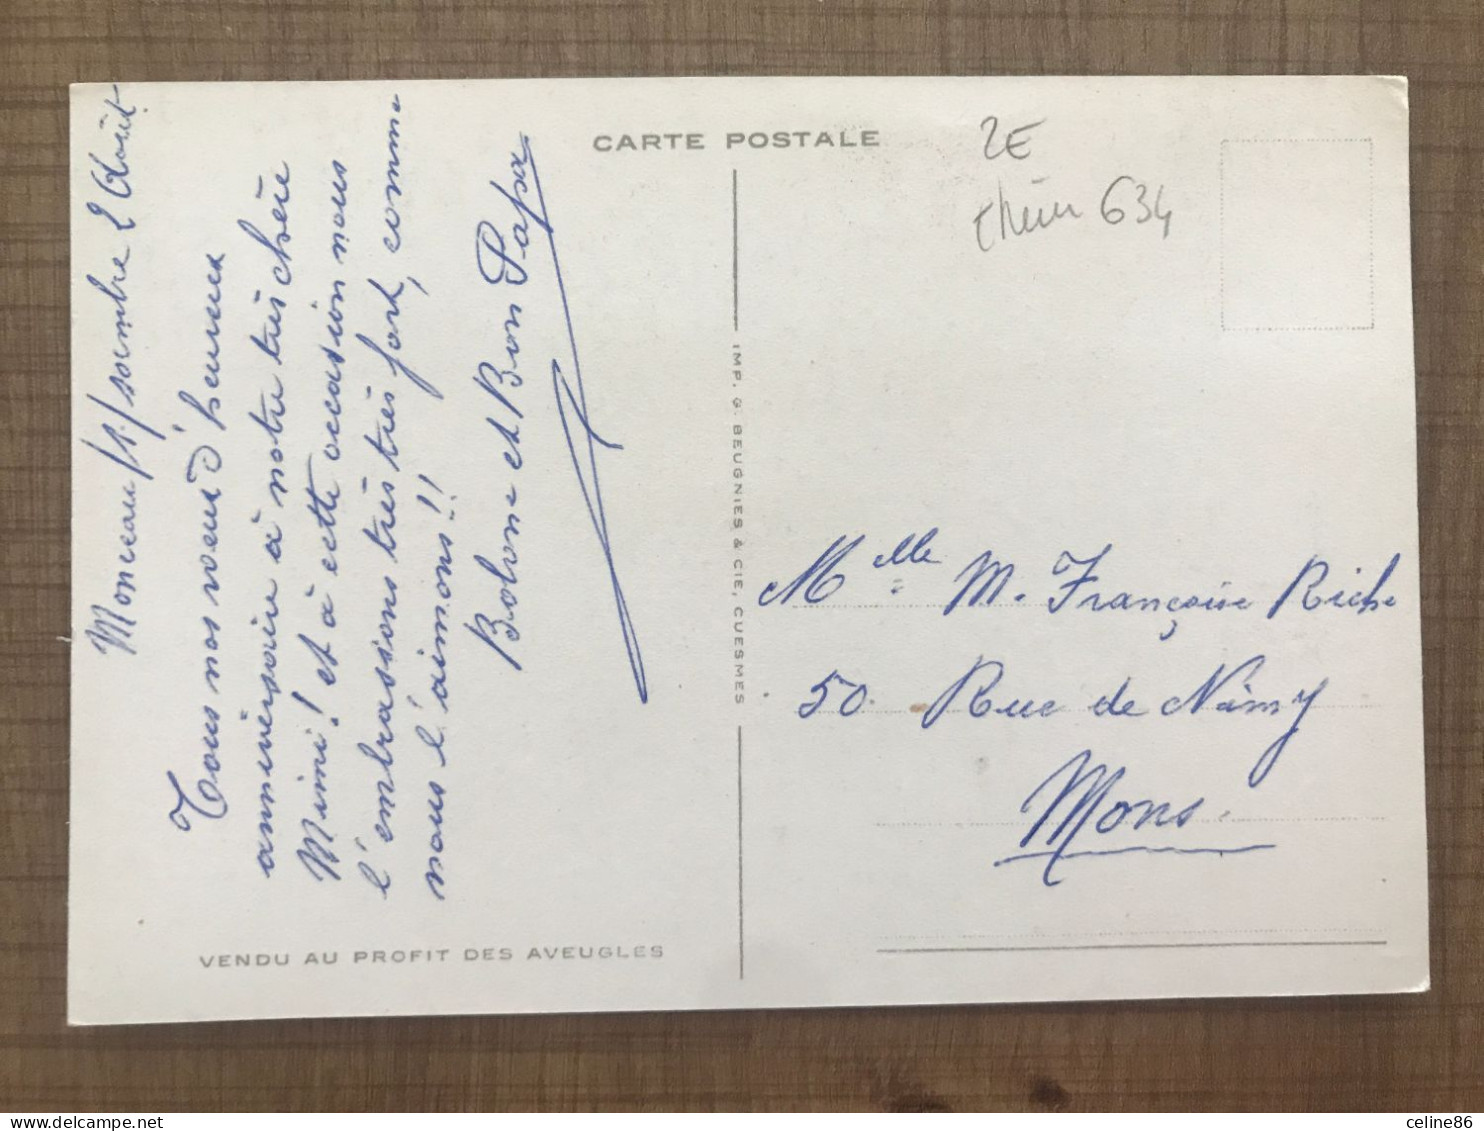 CARTE POSTALE
2E
634
Monceau/s./sombre 2 Août
Tous nos voeux d'heureux
anniversaire à notre très chère
Mimi! et à cette occasion nous
l'embrassons très très fort, comme
nous l'aimons!!
Bobonne et Bon Papa
VENDU AU PROFIT DES AVEUGLES
IMP. G. BEUGNIES & CIE, CUESMES
Mlle M. Françoise Riche
50. Rue de Nimy
Mons.
celine86